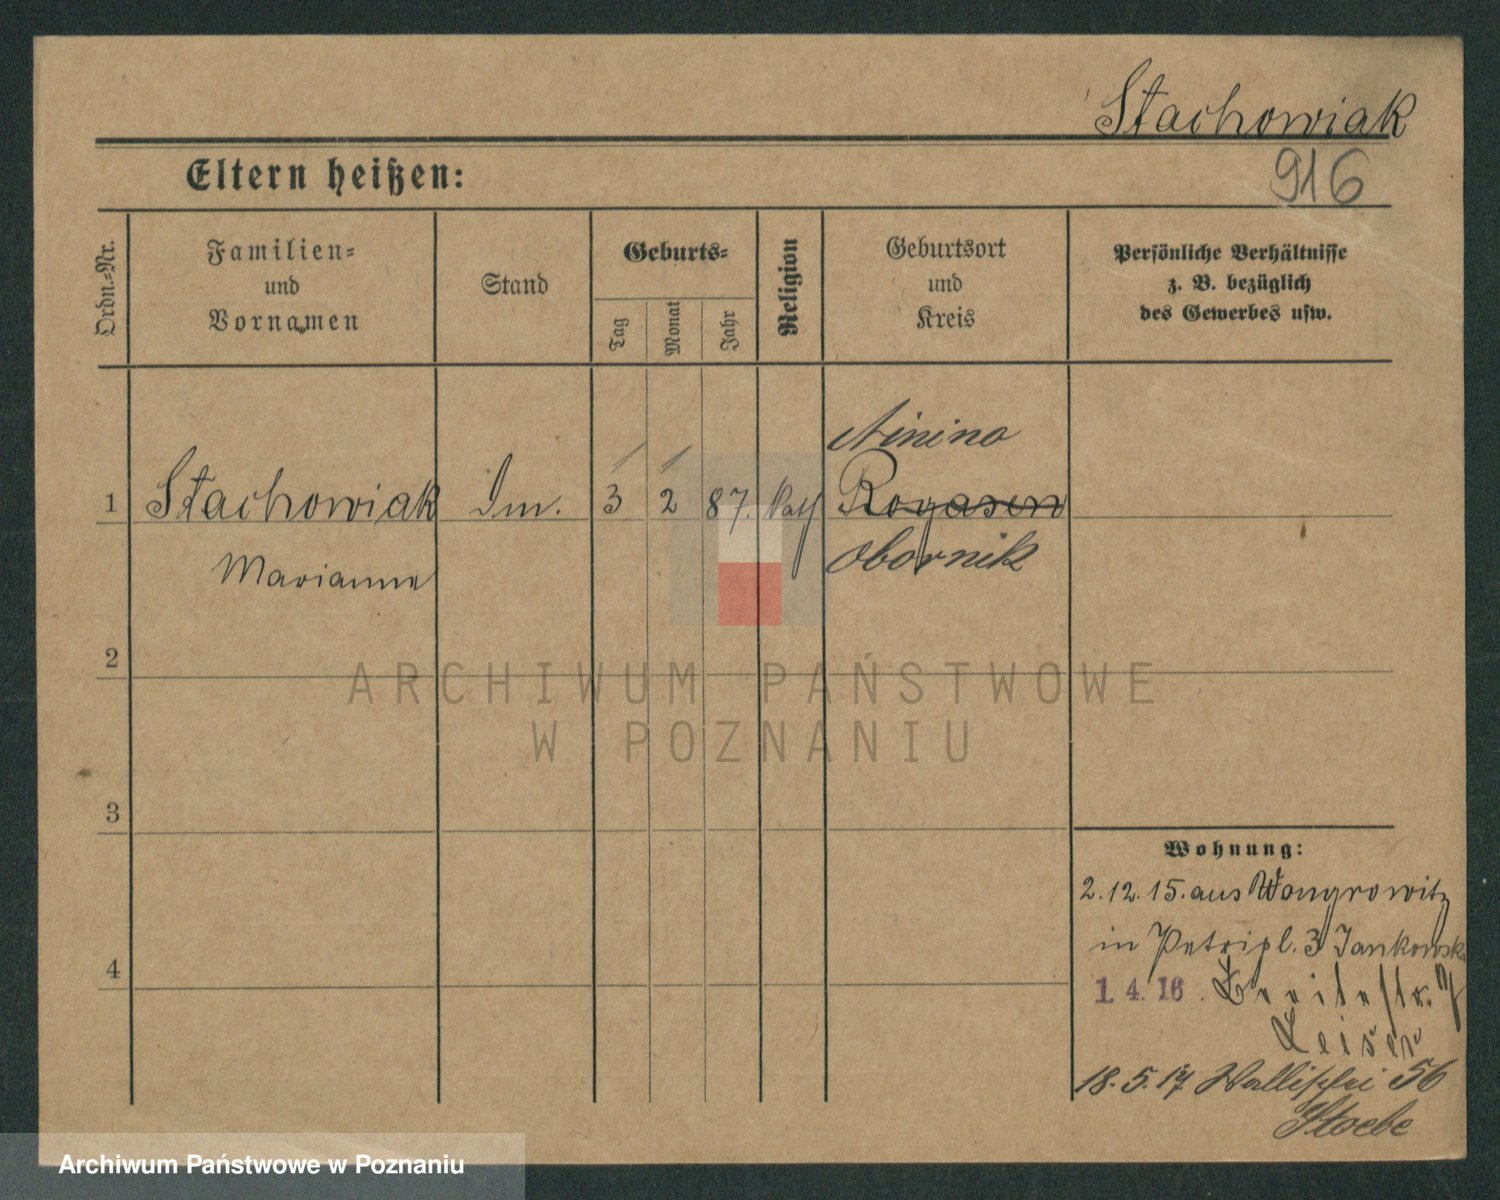 Stachowiak
916
Eltern heißen:
Ordn.-Nr.
Familien-
und
Vornamen
Stand
Geburts-
Tag
Monat
Jahr
Religion
Geburtsort
und
Kreis
Persönliche Verhältnisse
z. B. bezüglich
des Gewerbes usw.
Ninino
1 Stachowiak 3 2 87. Kath Rogasen
Marianna Obornik
2
3
4
Wohnung:
2.12.15. aus Wongrowitz
in Petripl. 3 Jankowska
1.4.16. Breitestr.
Leiser
18.5.17 Wallischei 56
Stoebe
ARCHIWUM PAŃSTWOWE
W POZNANIU
Archiwum Państwowe w Poznaniu